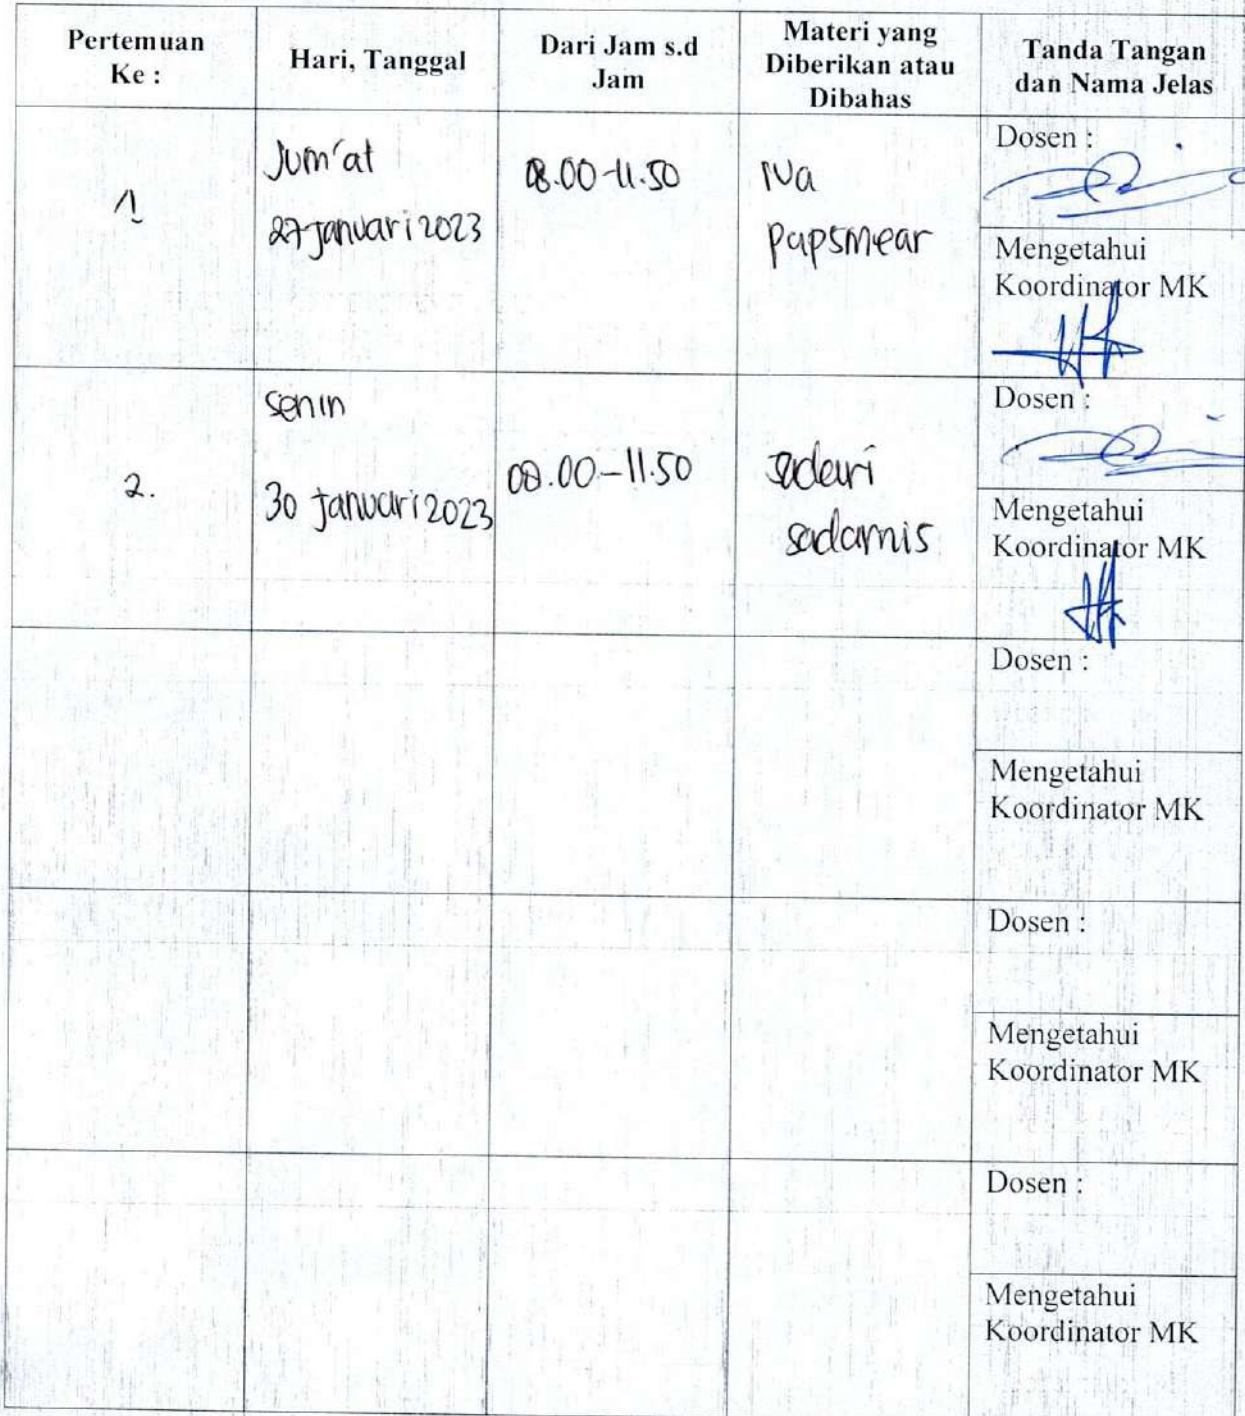 Pertemuan
Ke :
Hari, Tanggal
Dari Jam s.d
Jam
Materi yang
Diberikan atau
Dibahas
Tanda Tangan
dan Nama Jelas
1
Jum'at
27 Januari 2023
08.00-11.50
IVa
papsmear
Dosen :
Mengetahui
Koordinator MK
2.
senin
30 Januari 2023
08.00-11.50
sadari
sadarnis
Dosen :
Mengetahui
Koordinator MK
Dosen :
Mengetahui
Koordinator MK
Dosen :
Mengetahui
Koordinator MK
Dosen :
Mengetahui
Koordinator MK